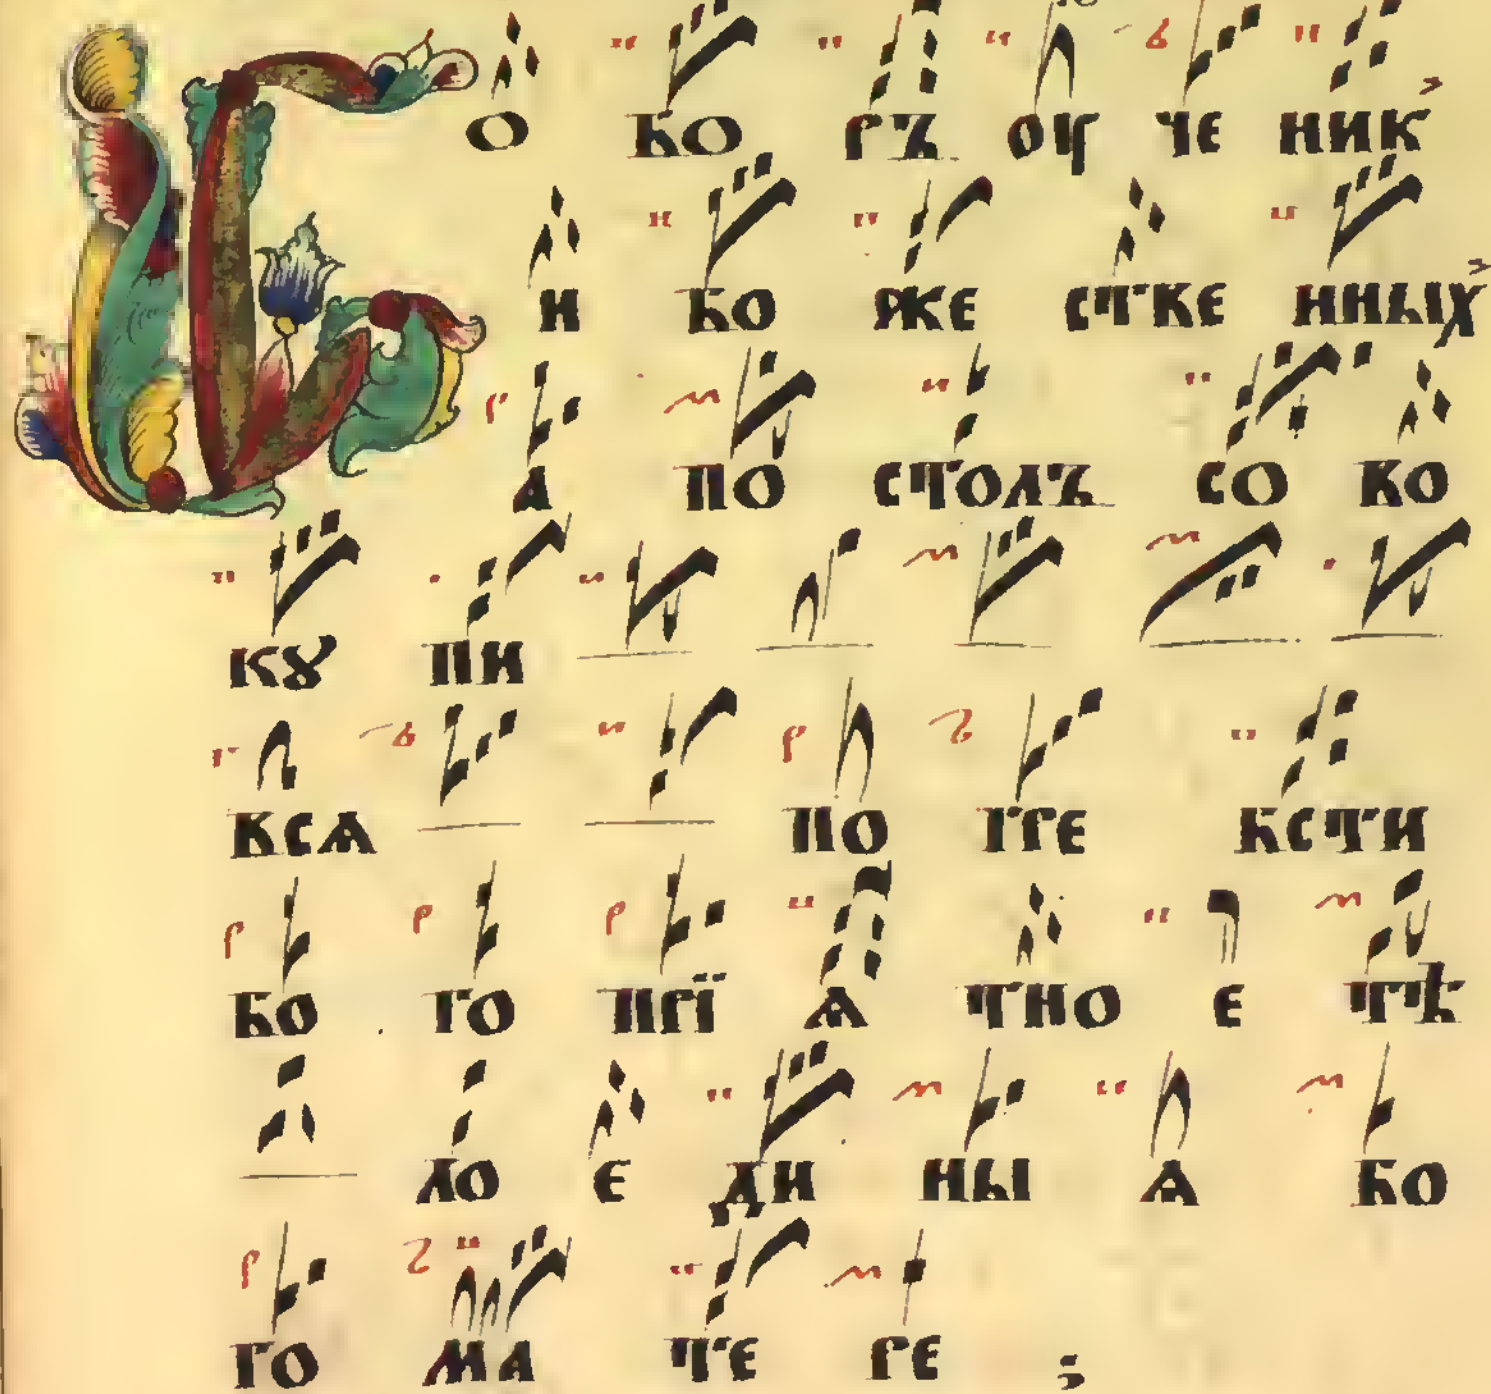 Со бо ръ оу че ник
и бо же стве нных
а по столъ со во
ку пи
вся по гре бсти
бо го прї я тно е тѣ
ло е ди ны я бо
го ма те ре ;